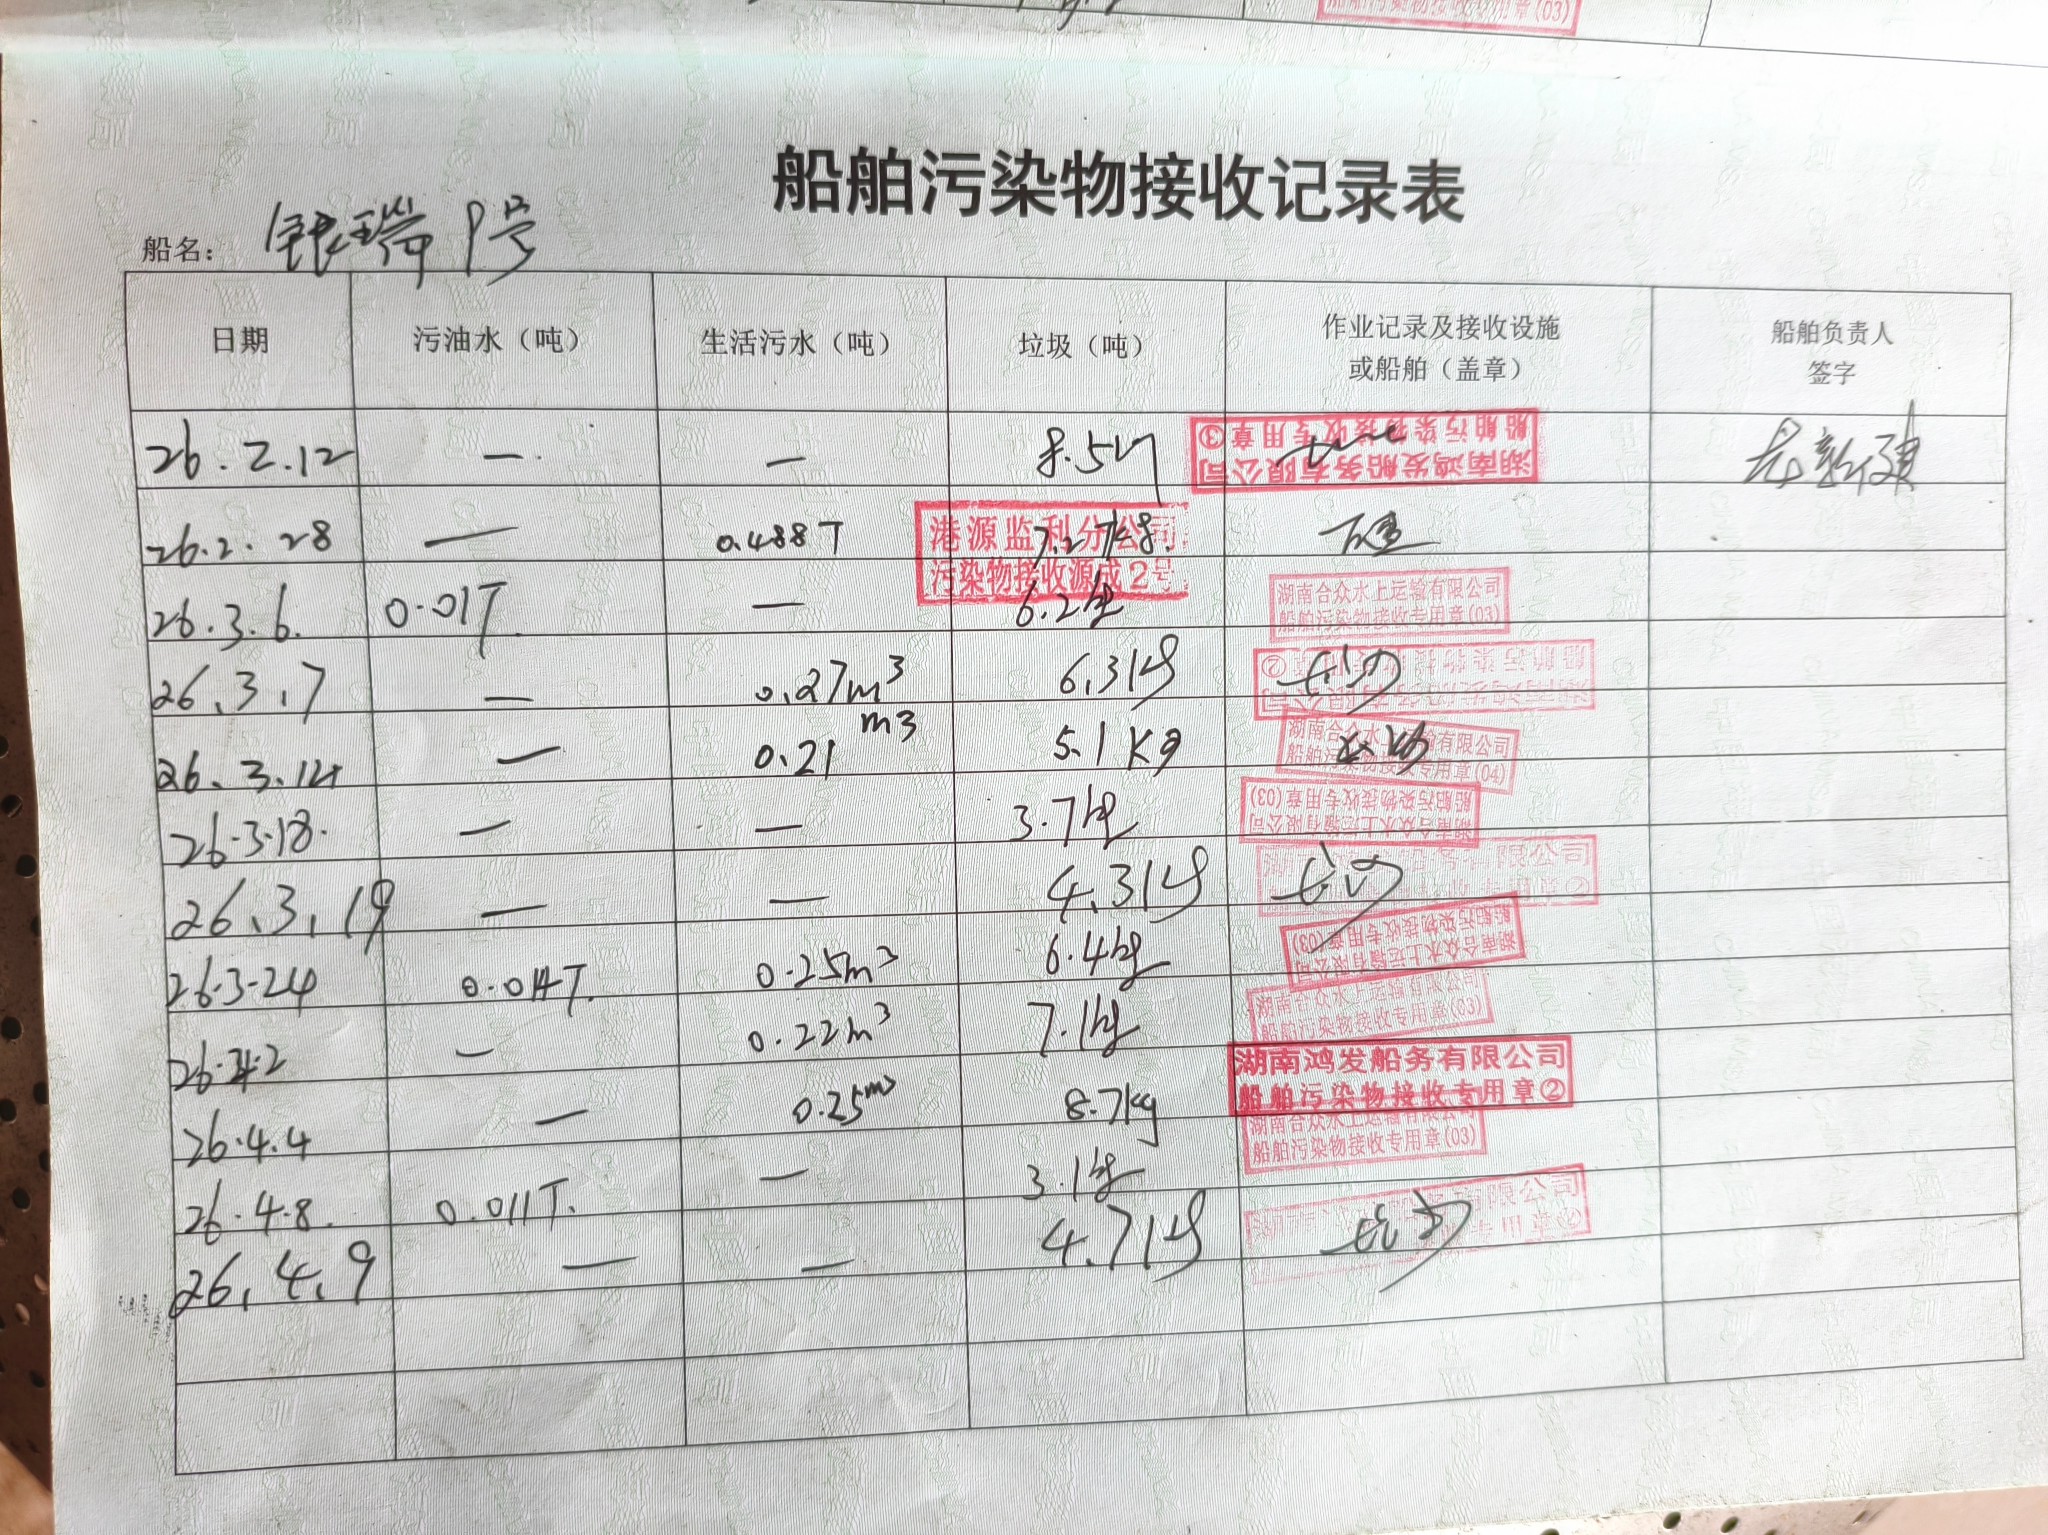 船舶污染物接收记录表
船名： 银瑞9号
日期 污油水（吨） 生活污水（吨） 垃圾（吨） 作业记录及接收设施或船舶（盖章） 船舶负责人签字
26.2.12 — — 8.5 湖南鸿发船务有限公司 船舶污染物接收专用章③
26.2.28 — 0.488T 7.2kg 港源监利分公司 污染物接收源成2号
26.3.6. 0.01T. — 6.2kg 湖南合众水上运输有限公司 船舶污染物接收专用章(03)
26.3.7 — 0.27m³ 6.3kg
26.3.14 — 0.21m3 5.1Kg 湖南合众水上运输有限公司 船舶污染物接收专用章(04)
26.3.18. — — 3.7kg 湖南合众水上运输有限公司 船舶污染物接收专用章(03)
26.3.19 — — 4.3kg
26.3.24 0.014T. 0.25m³ 6.4kg 湖南合众水上运输有限公司 船舶污染物接收专用章(03)
26.4.2 — 0.22m³ 7.1kg 湖南合众水上运输有限公司 船舶污染物接收专用章(03)
26.4.4 — 0.25m³ 8.7kg 湖南鸿发船务有限公司 船舶污染物接收专用章②
26.4.8. 0.011T. — 3.1kg 湖南合众水上运输有限公司 船舶污染物接收专用章(03)
26.4.9 — — 4.7kg